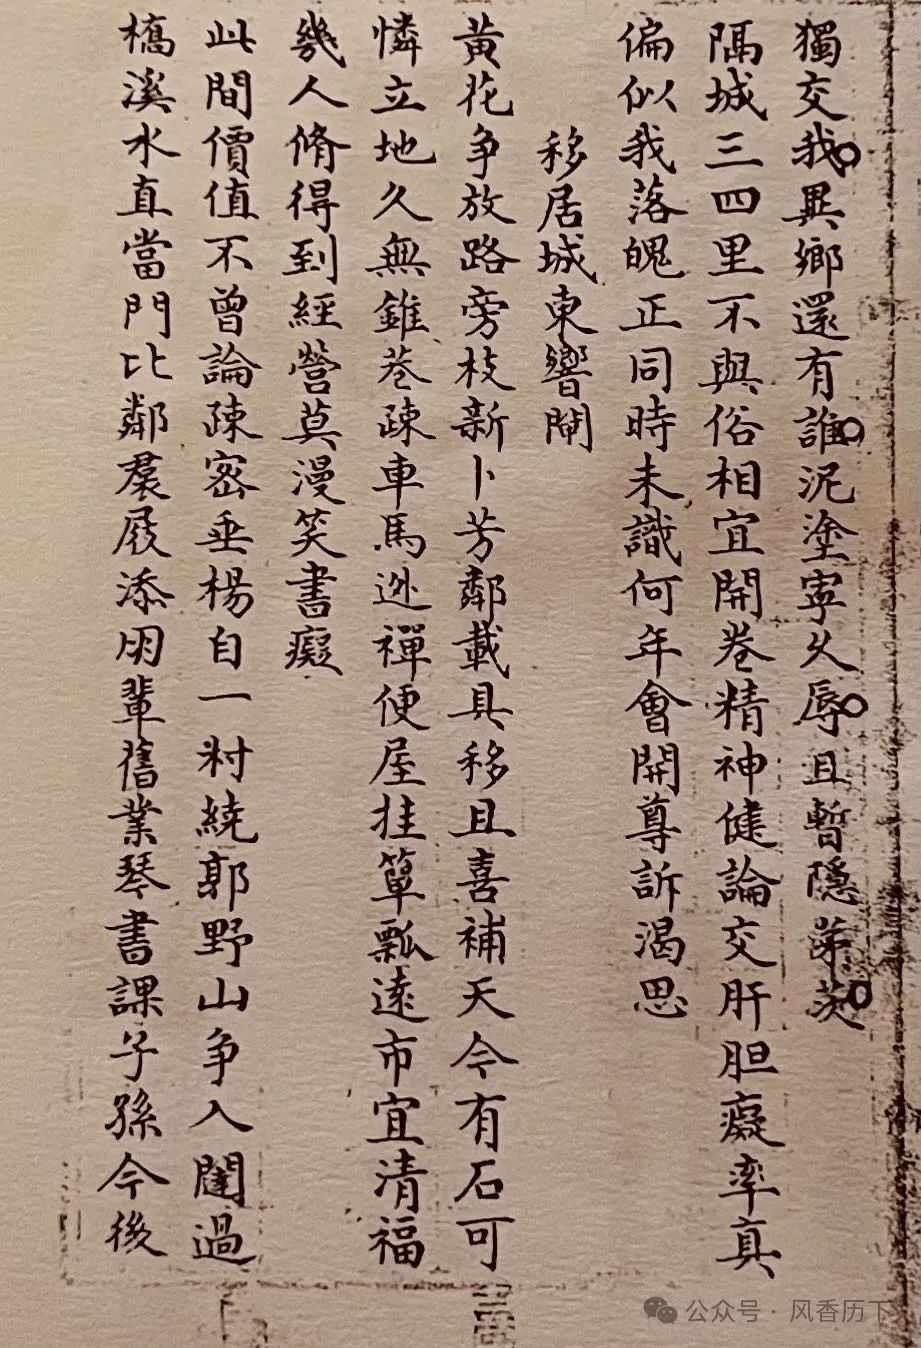 獨交我異鄉還有誰泥塗寧久辱且暫隱茅茨
隔城三四里不與俗相宜開卷精神健論交肝胆癡率真
偏似我落魄正同時未識何年會開尊訴渴思
移居城東響閘
黃花争放路旁枝新卜芳鄰載具移且喜補天今有石可
憐立地久無錐巷疎車馬迯禪便屋挂簞瓢遠市宜清福
幾人脩得到經營莫漫笑書癡
此間價值不曾論疎密垂楊自一村繞郭野山争入闥過
橋溪水直當門比鄰裠屐添朋輩舊業琴書課子孫今後
公众号 · 风香历下